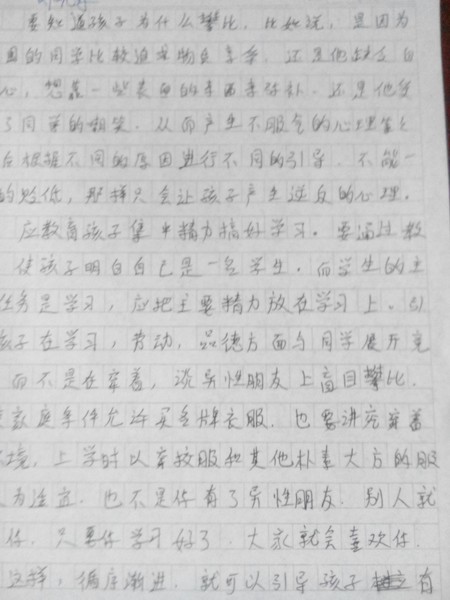 要知道孩子为什么攀比，比如说，是因为
围的同学比较追求物质享受，还是他缺乏自
心，想靠一些表面的东西来弥补，还是他受
了同学的嘲笑，从而产生不服气的心理等之
后根据不同的原因进行不同的引导，不能一
的贬低，那样只会让孩子产生逆反的心理。
应教育孩子集中精力搞好学习。要通过教
使孩子明白自己是一名学生，而学生的主
任务是学习，应把主要精力放在学习上。引
孩子在学习，劳动，品德方面与同学展开竞
而不是在穿着，谈异性朋友上盲目攀比。
家庭条件允许买名牌衣服，也要讲究穿着
环境，上学时以穿校服和其他朴素大方的服
为适宜。也不是你有了异性朋友，别人就
你，只要你学习好了，大家就会喜欢你。
这样，循序渐进，就可以引导孩子有